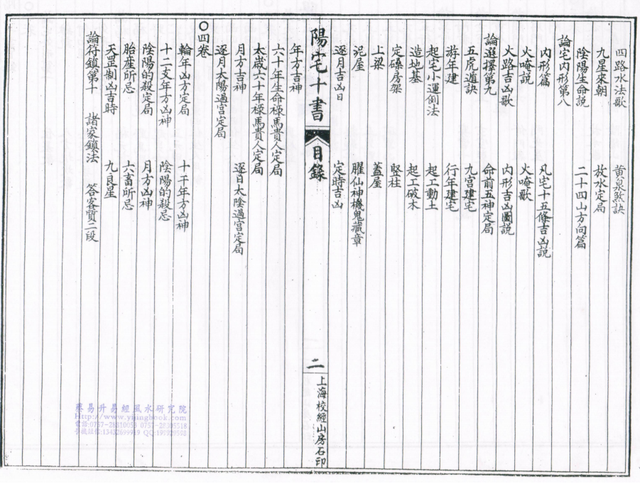 四路水法歌 黃泉煞訣
九星來朝 放水定局
陰陽生命說 二十四山方向篇
論宅內形第八
內形篇 凡宅十五條吉凶說
火唵說 火唵歌
火路吉凶歌 內形吉凶圖說
論選擇第九 命前五神定局
五虎遁訣 九宮建宅
游年建 行年建宅
起宅小運例法 起工動土
造地基 起工破木
定磉房架 竪柱
上梁 蓋屋
泥屋 臞仙神機鬼藏章
逐月吉凶日 定時吉凶
陽宅十書 目錄 二 上海校經山房石印
年方吉神
六十年生命祿馬貴人定局
太歲六十年祿馬貴人定局
月方吉神 逐日太陰過宮定局
逐月太陽過宮定局
〇四卷
輪年凶方定局 十干年方凶神
十二支年方凶神 月方凶神
陰陽的殺定局 陰陽的殺忌
胎產所忌 六畜所忌
天罡制凶吉時 九良星
論符鎮第十 諸家鎮法 答客質二段
易升易經風水研究院